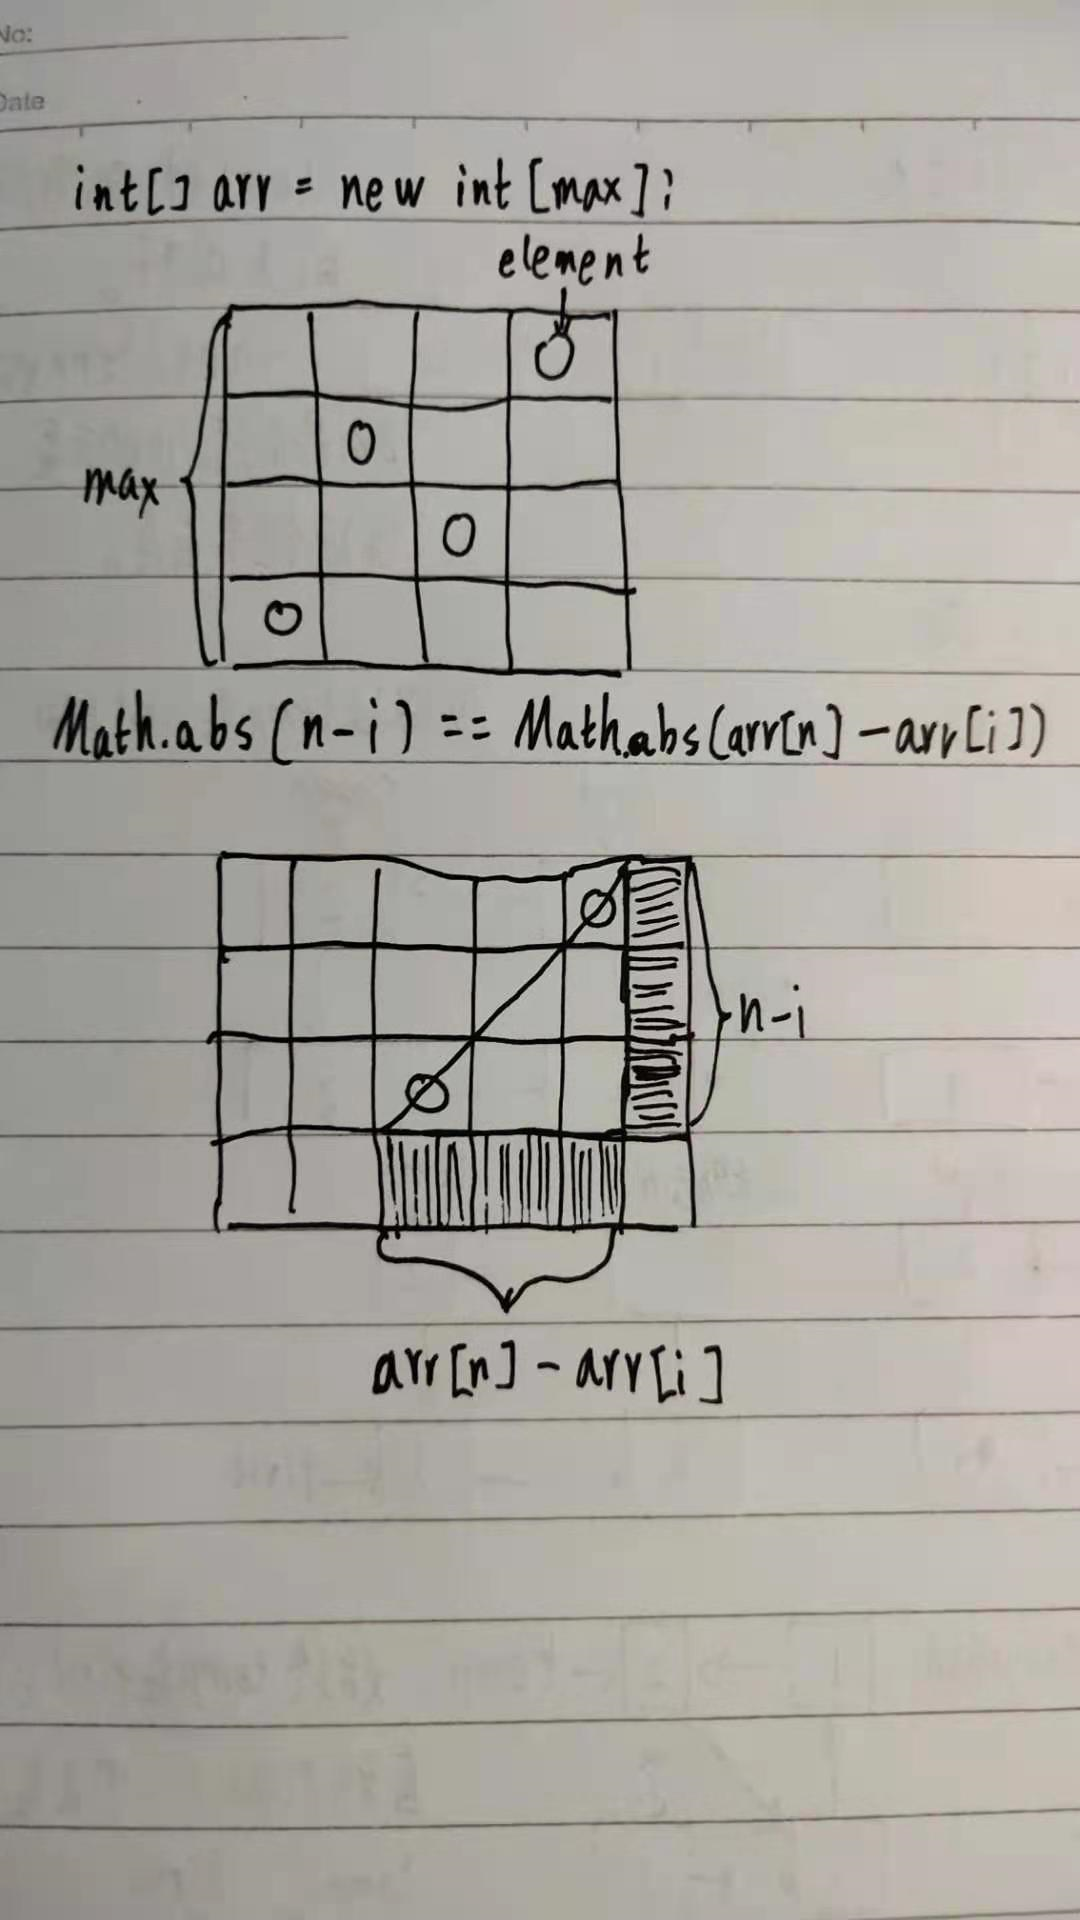 No:
Date
int[] arr = new int [max];
element
max
Math.abs (n-i) == Math.abs(arr[n] - arr[i])
n-i
arr[n] - arr[i]